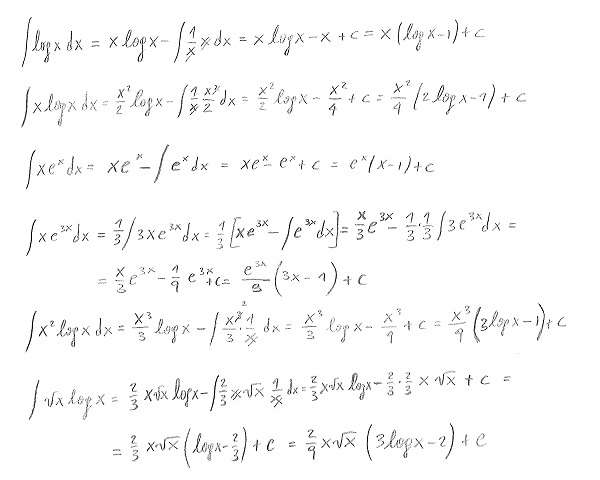 ∫ log x dx = x log x − ∫ 1/x x dx = x log x − x + c = x (log x − 1) + c
∫ x log x dx = x²/2 log x − ∫ 1/x x²/2 dx = x²/2 log x − x²/4 + c = x²/4 (2 log x − 1) + c
∫ x eˣ dx = x eˣ − ∫ eˣ dx = xeˣ − eˣ + c = eˣ (x − 1) + c
∫ x e³ˣ dx = 1/3 ∫ 3x e³ˣ dx = 1/3 [x e³ˣ − ∫ e³ˣ dx] = x/3 e³ˣ − 1/3 · 1/3 ∫ 3 e³ˣ dx =
= x/3 e³ˣ − 1/9 e³ˣ + c = e³ˣ/9 (3x − 1) + c
∫ x² log x dx = x³/3 log x − ∫ x³/3 · 1/x dx = x³/3 log x − x³/9 + c = x³/9 (3 log x − 1) + c
∫ √x log x = 2/3 x √x log x − ∫ 2/3 x √x 1/x dx = 2/3 x √x log x − 2/3 · 2/3 x √x + c =
= 2/3 x √x (log x − 2/3) + c = 2/9 x √x (3 log x − 2) + c